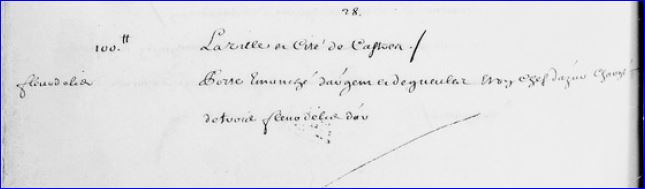 28.
100.tt La ville et Cité de Castres
fleurdelisé Porte Emanché d'argent et de gueules et un chef d'azur chargé
de trois fleurs de lis d'or